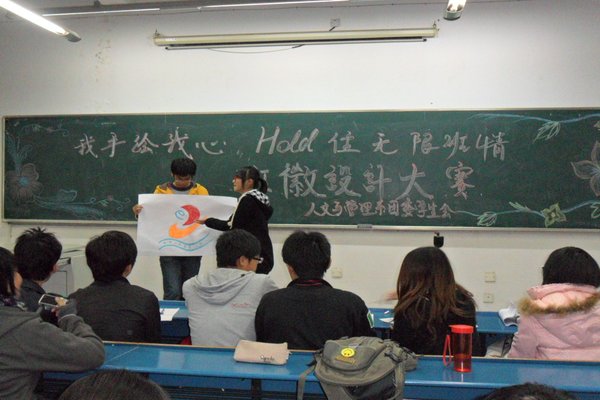 我手绘我心，Hold住无限班情
徽设计大赛
人文与管理系团委学生会